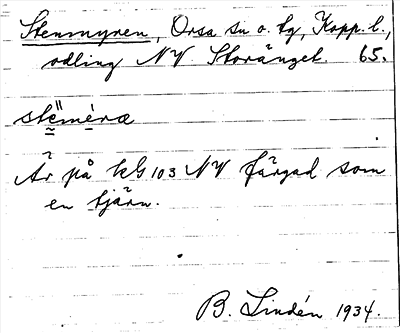 Stenmyren, Orsa sn o. tg, Kopp. l.,
odling NV Storänget. 65.
stëmèra
Är på kG 103 NV färgad som
en tjärn.
B. Lindén 1934.